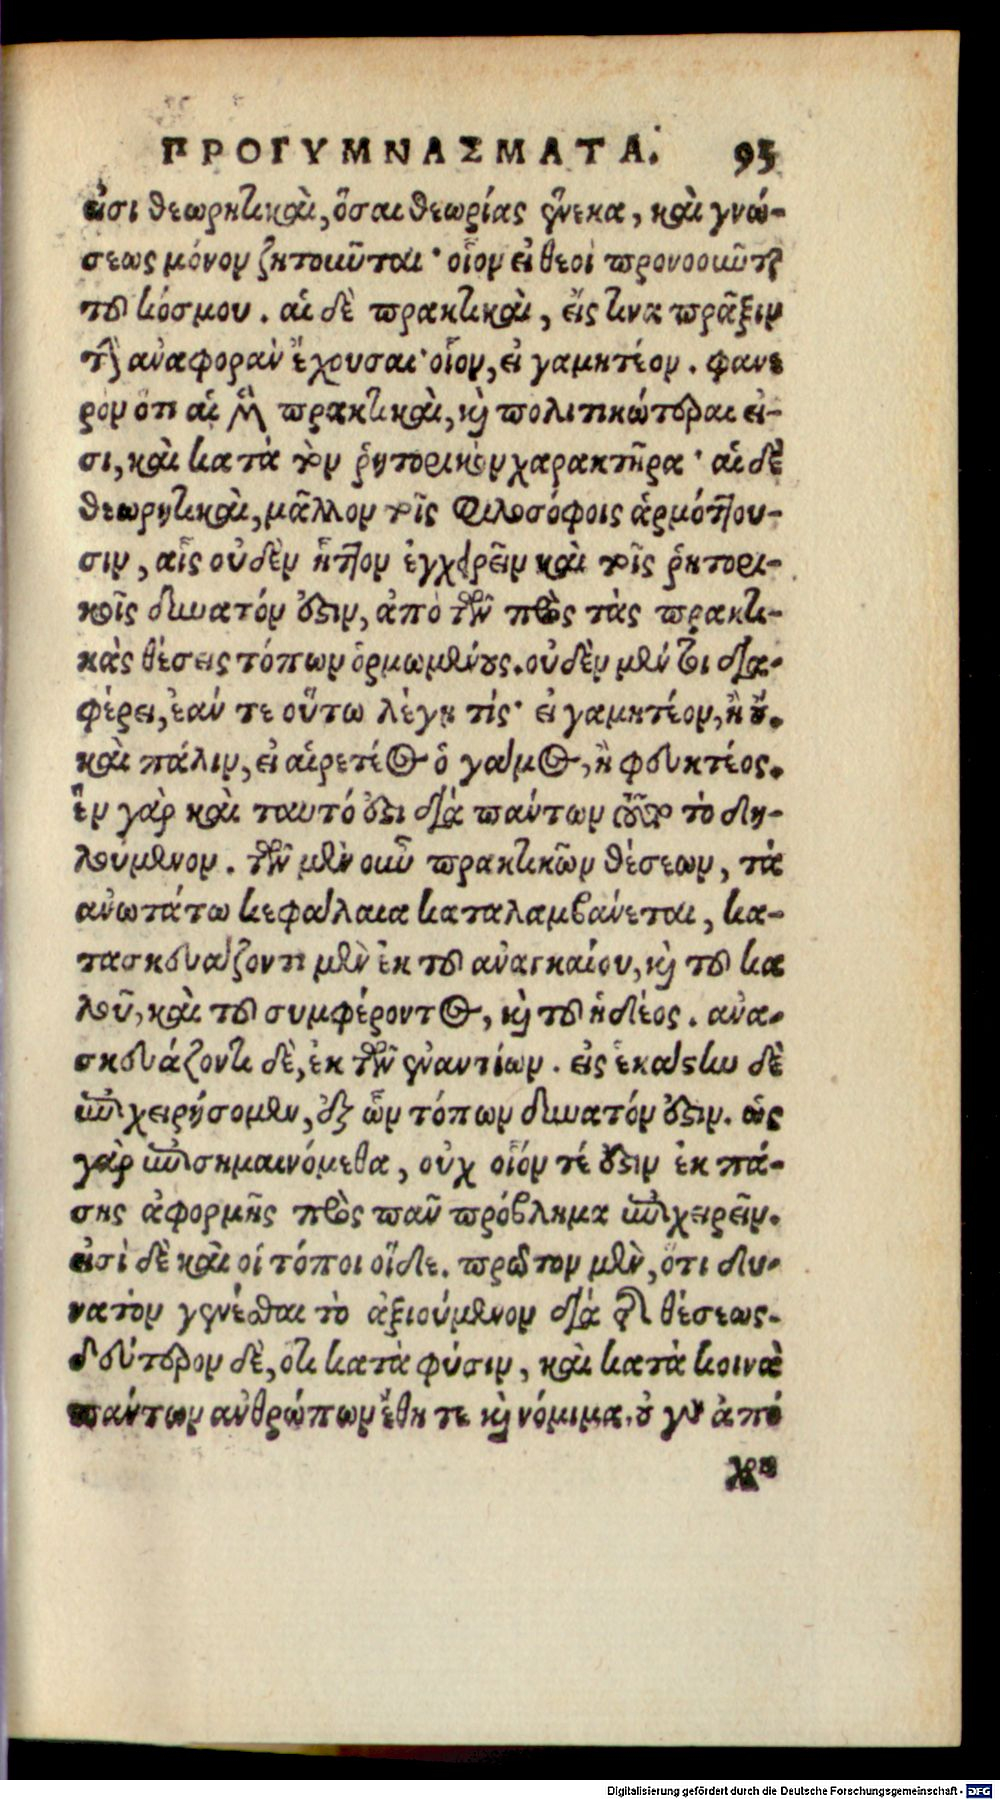 ΠΡΟΓΥΜΝΑΣΜΑΤΑ. 95
εἰσι θεωρητικαὶ, ὅσαι θεωρίας ἕνεκα, καὶ γνώ-
σεως μόνον ζητοῦνται· οἷον εἰ θεοὶ προνοοῦνται
τοῦ κόσμου. αἱ δὲ πρακτικαὶ, εἴς τινα πρᾶξιν
τὴν ἀναφορὰν ἔχουσαι· οἷον, εἰ γαμητέον. φανε
ρὸν ὅτι αἱ μὲν πρακτικαὶ, καὶ πολιτικώτεραι εἰ-
σι, καὶ κατὰ τὸν ῥητορικὸν χαρακτῆρα· αἱ δὲ
θεωρητικαὶ, μᾶλλον τοῖς φιλοσόφοις ἁρμόττου-
σιν, αἷς οὐδὲν ἧττον ἐγχειρεῖν καὶ τοῖς ῥητορι-
κοῖς δυνατόν ἐστιν, ἀπὸ τῶν πρὸς τὰς πρακτι-
κὰς θέσεις τόπων ὁρμωμένους. οὐδὲν μέν τοι δια-
φέρει, ἐάν τε οὕτω λέγῃ τίς· εἰ γαμητέον, ἢ οὔ.
καὶ πάλιν, εἰ αἱρετέος ὁ γάμος, ἢ φευκτέος.
ἓν γὰρ καὶ ταυτό ἐστι διὰ πάντων τούτων τὸ δη-
λούμενον. τῶν μὲν οὖν πρακτικῶν θέσεων, τὰ
ἀνωτάτω κεφάλαια καταλαμβάνεται, κα-
τασκευάζοντι μὲν ἐκ τοῦ ἀναγκαίου, καὶ τοῦ κα
λοῦ, καὶ τοῦ συμφέροντος, καὶ τοῦ ἡδέος. ἀνα-
σκευάζοντι δὲ, ἐκ τῶν ἐναντίων. εἰς ἑκάστην δὲ
ἐπιχειρήσομεν, ἐξ ὧν τόπων δυνατόν ἐστιν. ὡς
γὰρ ἐπισημαινόμεθα, οὐχ οἷόν τέ ἐστιν ἐκ πά-
σης ἀφορμῆς πρὸς πᾶν πρόβλημα ἐπιχειρεῖν.
εἰσὶ δὲ καὶ οἱ τόποι οἵδε. πρῶτον μὲν, ὅτι δυ-
νατὸν γενέσθαι τὸ ἀξιούμενον διὰ τῆς θέσεως.
δεύτερον δὲ, ὅτι κατὰ φύσιν, καὶ κατὰ κοινὰ
πάντων ἀνθρώπων ἔθη τε καὶ νόμιμα. οὐ γὰρ ἀπό